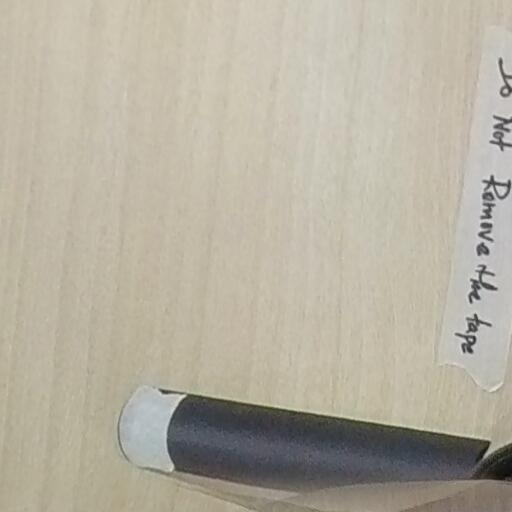 Do Not Remove the tape